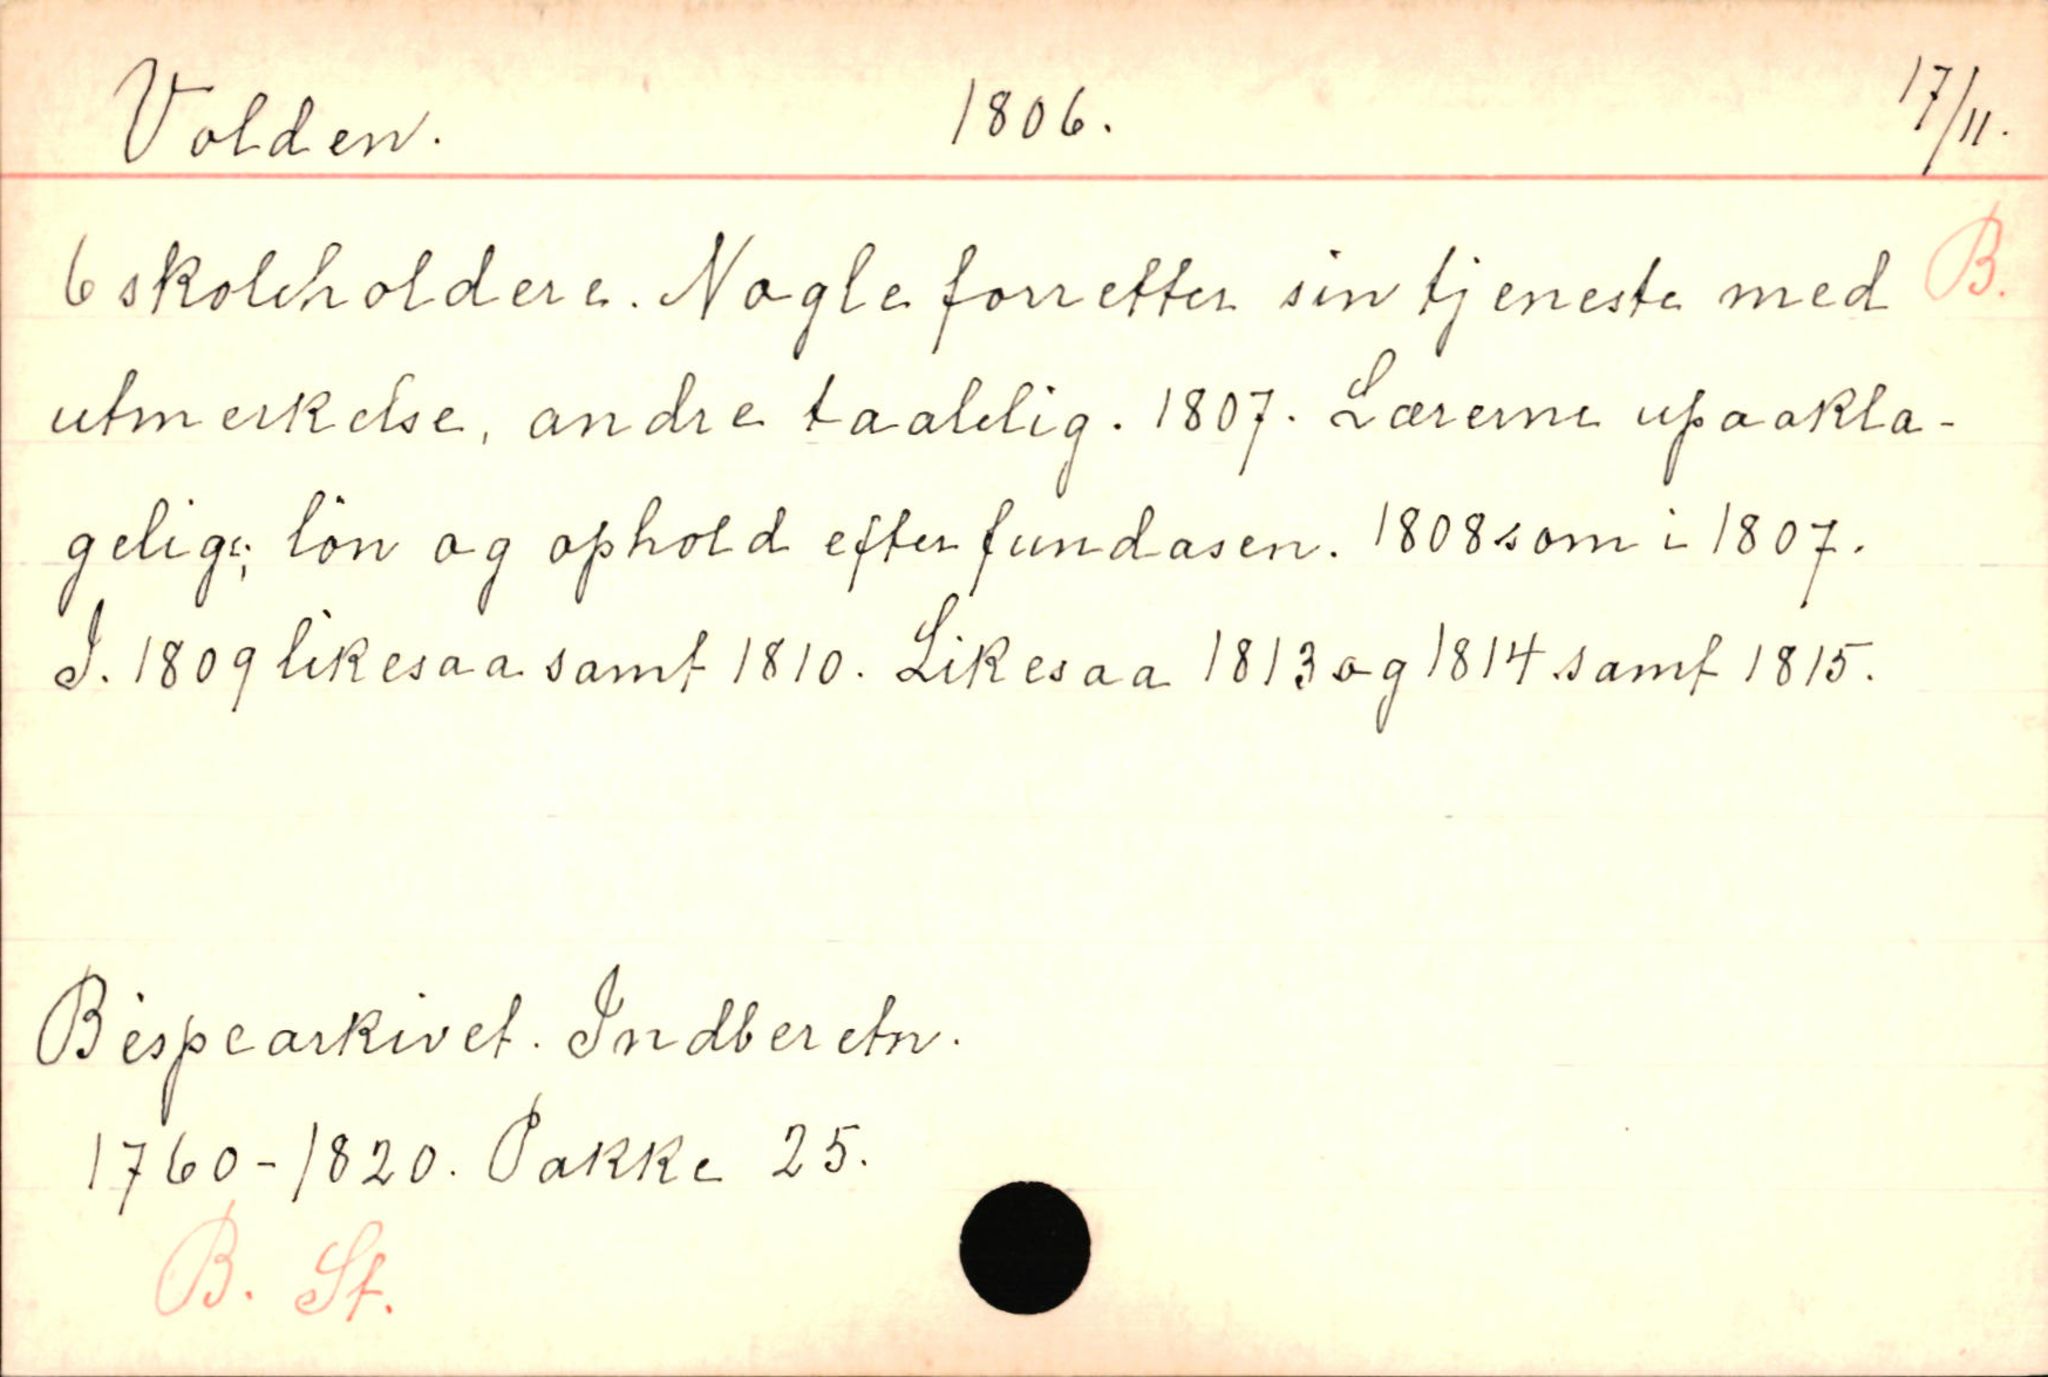 Volden. 1806. 17/11.
6 skoleholdere. Nogle forretter sin tjeneste med B.
utmerkelse, andre taalelig. 1807. Lærerne upaakla-
gelige; lön og ophold efter fundasen. 1808 som i 1807.
I. 1809 likesaa samt 1810. Likesaa 1813 og 1814 samt 1815.
Bispearkivet. Indberetn.
1760-1820. Pakke 25.
B. St.